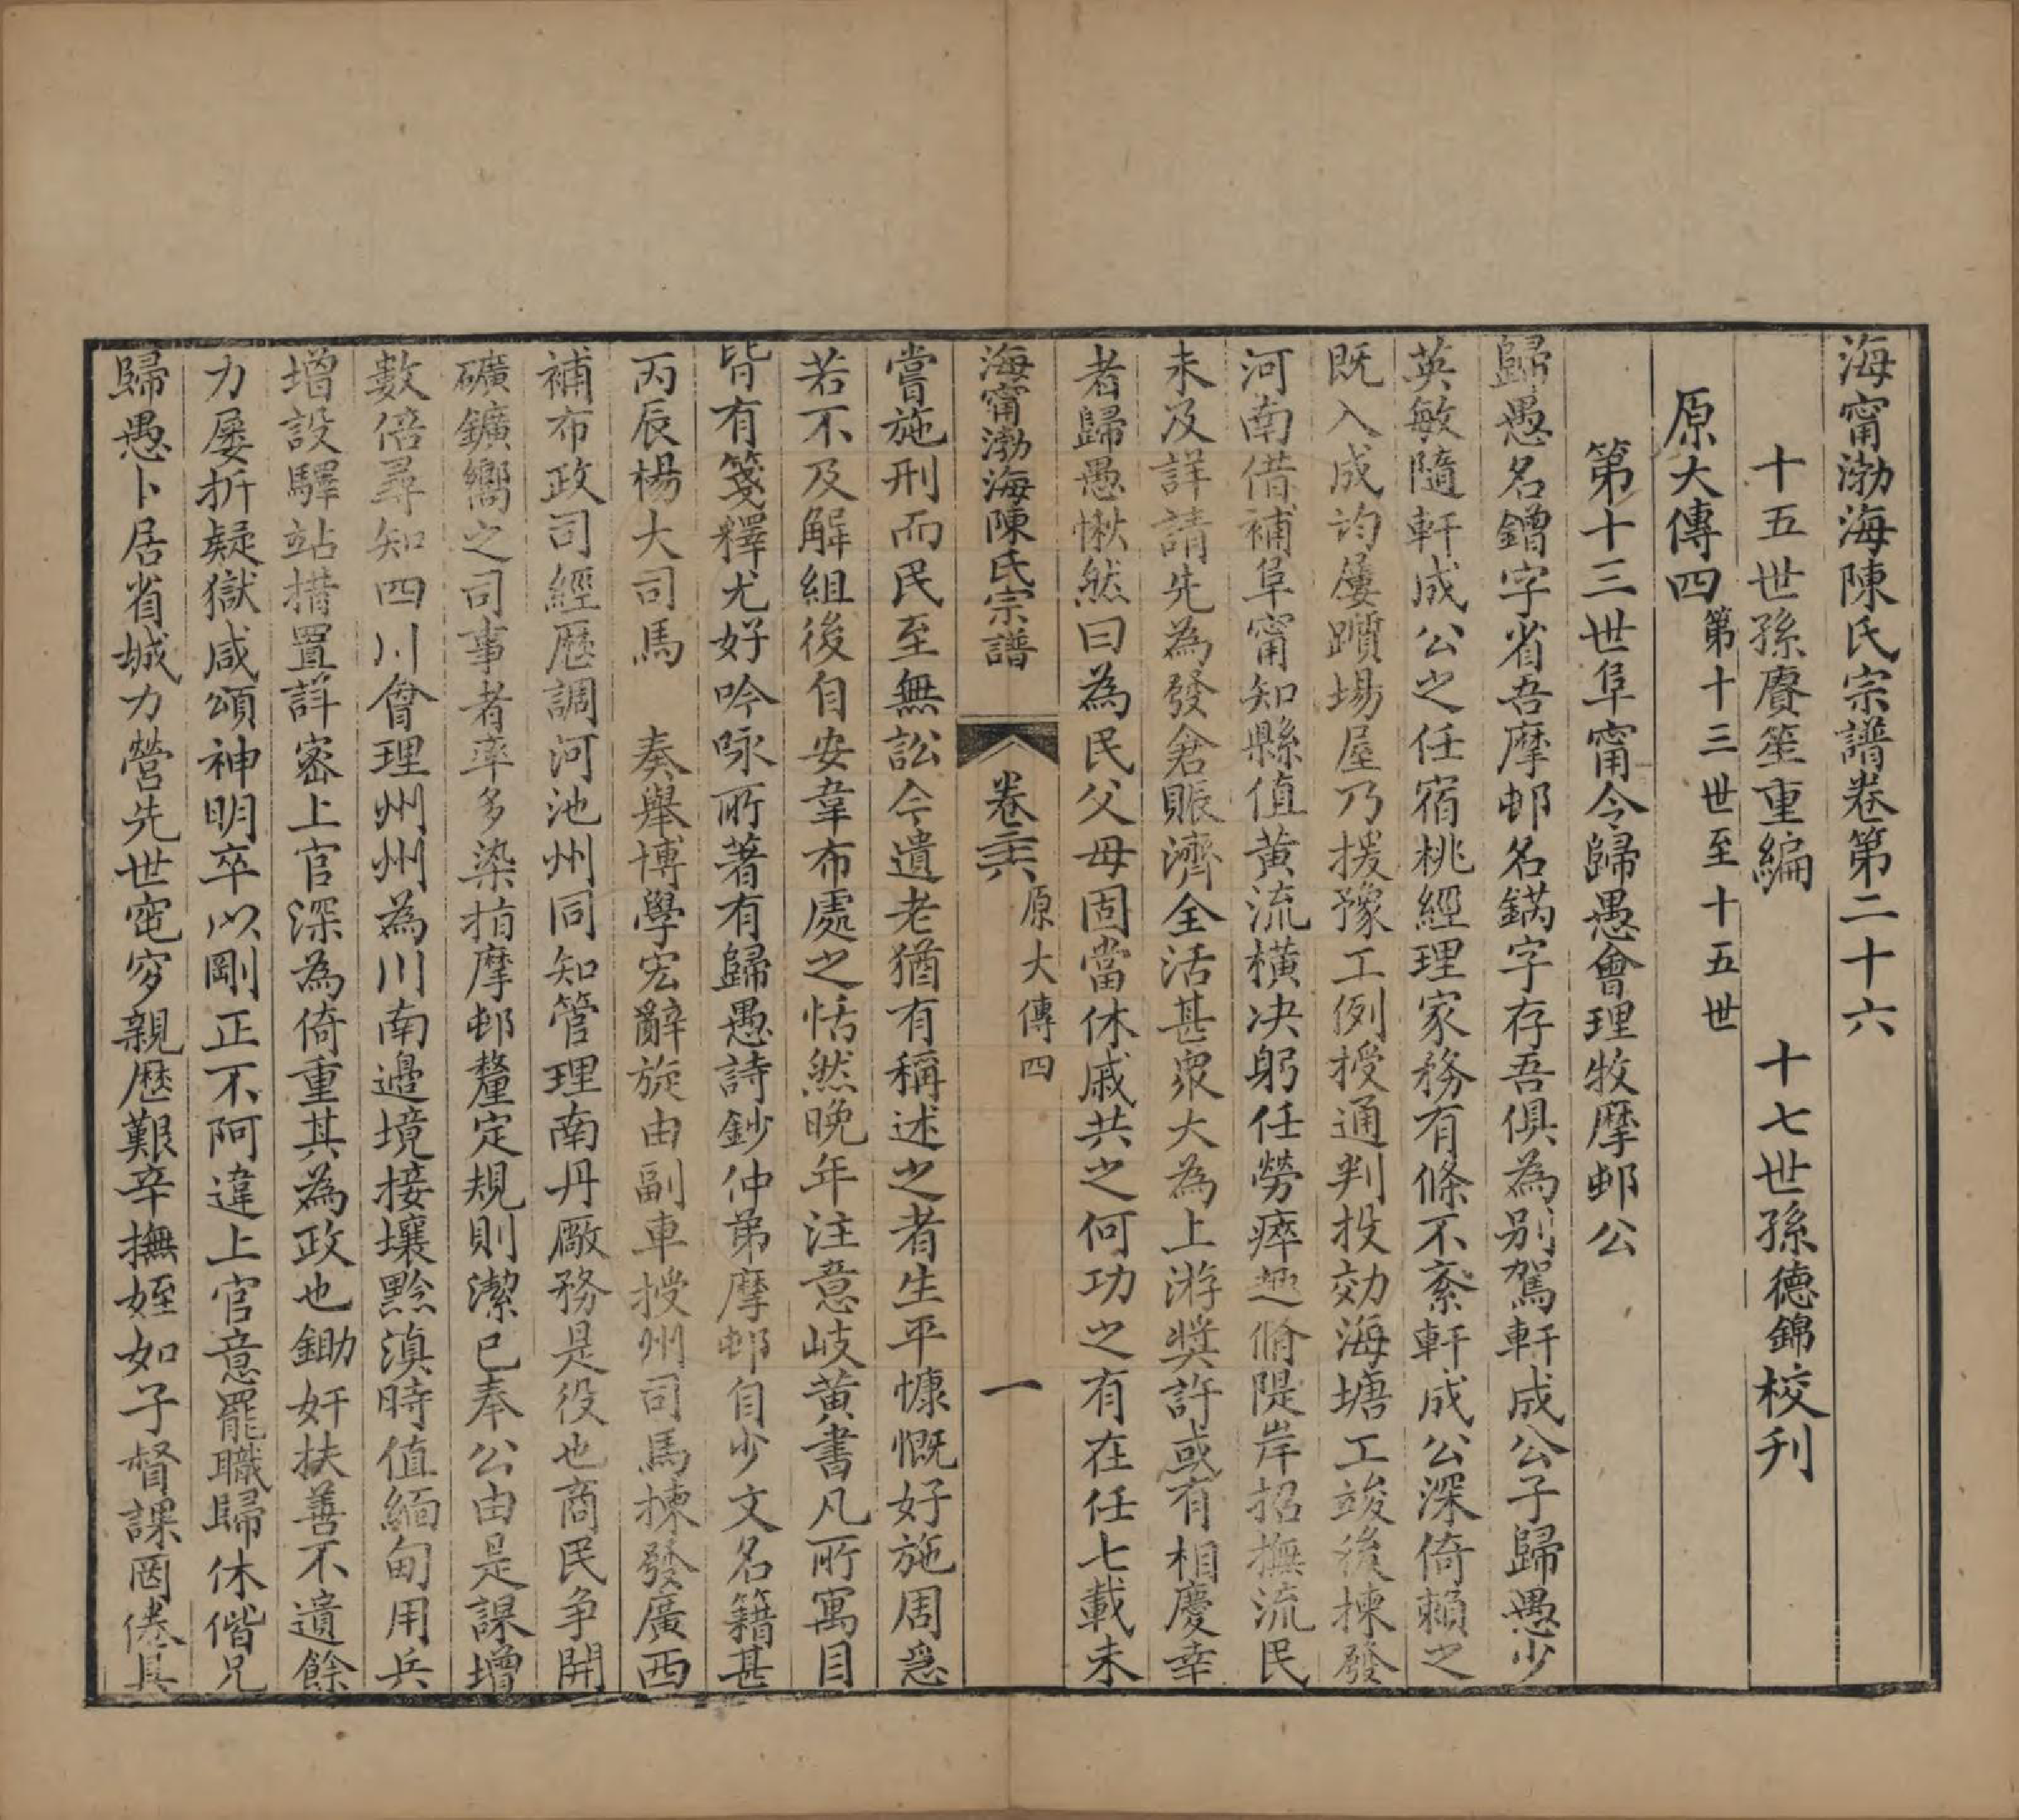 海甯渤海陳氏宗譜卷第二十六
十五世孫賡笙重編　十七世孫德錦校刊
原大傳四 第十三世至十五世
第十三世阜甯令歸愚會理牧摩邨公
歸愚名鏳字省吾摩邨名鎷字存吾俱為別駕軒成公子歸愚少
英敏隨軒成公之任宿桃經理家務有條不紊軒成公深倚賴之
既入成均屢躓場屋乃援豫工例授通判投効海塘工竣後揀發
河南借補阜甯知縣值黃流橫決躬任勞瘁趣脩隄岸招撫流民
未及詳請先為發倉賑濟全活甚眾大為上游奬許或有相慶幸
者歸愚愀然曰為民父母固當休戚共之何功之有在任七載未
海甯渤海陳氏宗譜　卷二十六　原大傳四　一
嘗施刑而民至無訟今遺老猶有稱述之者生平慷慨好施周急
若不及解組後自安韋布處之恬然晚年注意岐黃書凡所寓目
皆有箋釋尤好吟咏所著有歸愚詩鈔仲弟摩邨自少文名籍甚
丙辰楊大司馬　奏舉博學宏辭旋由副車授州司馬揀發廣西
補布政司經歷調河池州同知管理南丹廠務是役也商民爭開
礦鑛嚮之司事者率多染指摩邨釐定規則潔已奉公由是課增
數倍尋知四川會理州州為川南邊境接壤黔滇時值緬甸用兵
增設驛站措置詳密上官深為倚重其為政也鋤奸扶善不遺餘
力屢折疑獄咸頌神明卒以剛正不阿違上官意罷職歸休偕兄
歸愚卜居省城力營先世窀穸親歷艱辛撫姪如子督課罔倦具